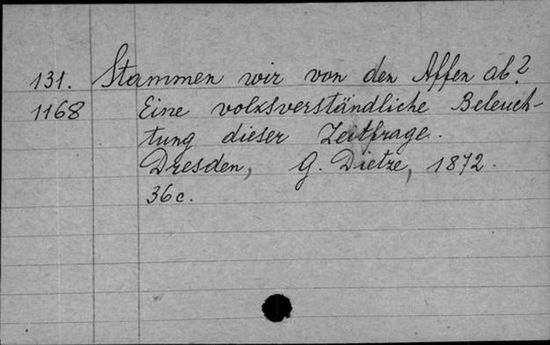 131. Stammen wir von den Affen ab?
1168 Eine volksverständliche Beleuch-
tung dieser Zeitfrage.
Dresden, G. Dietze, 1872.
36c.